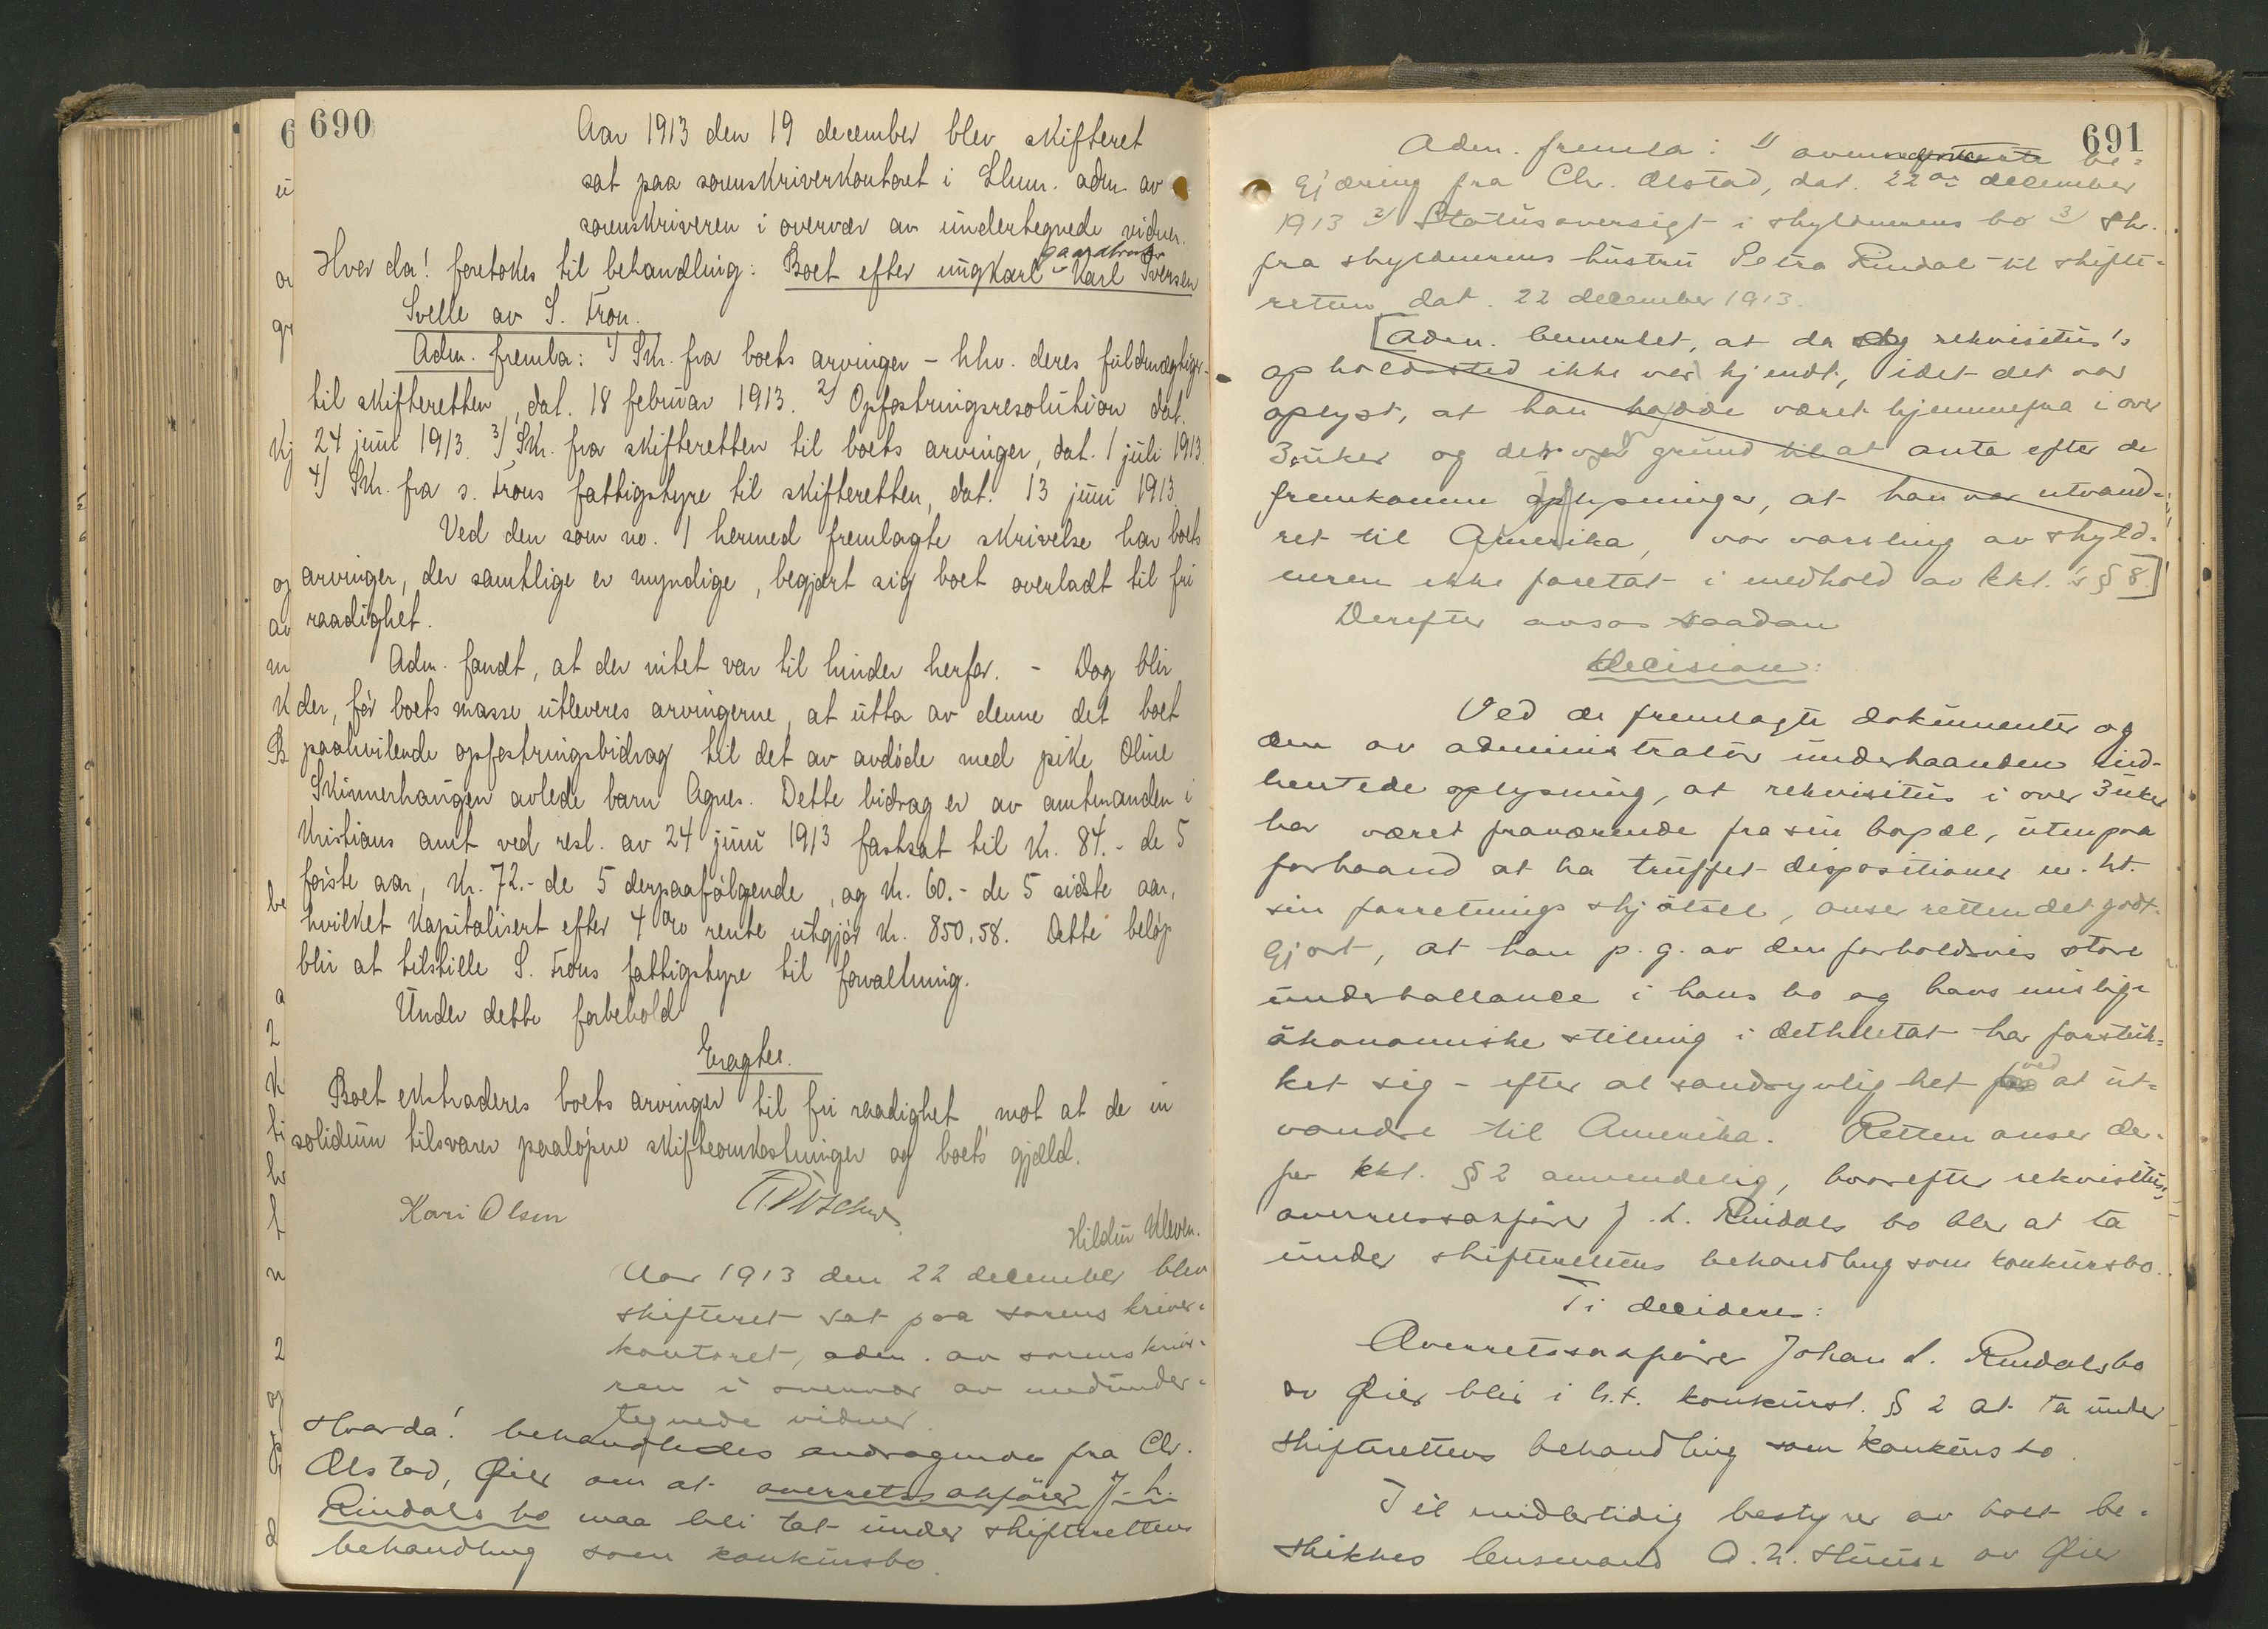 690
Aar 1913 den 19 december blev skifteret
sat paa sorenskriverkontoret i Lhmr. adm av
sorenskriveren i overvær av undertegnede vidner.
Hvor da! foretokes til behandling: Boet efter ungkarl gaardbruker Karl Iversen
Svelle av S. Fron.
Adm. fremla: 1) Skr. fra boets arvinger - hhv. deres fuldmægtiger
til skifteretten, dat. 18 februar 1913. 2) Opfostringsresolution dat.
24 juni 1913. 3) Skr. fra skifteretten til boets arvinger, dat. 1 juli 1913.
4) Skr. fra s. Frons fattigstyre til skifteretten, dat. 13 juni 1913.
Ved den som no. 1 hermed fremlagte skrivelse har boets
arvinger, der samtlige er myndige, begjært sig boet overladt til fri
raadighet.
Adm. fandt, at der intet var til hinder herfor. - Dog blir
der, før boets masse utleveres arvingerne, at utta av denne det boet
paahvilende opfostringsbidrag til det av avdøde med pike Oline
Skinnerhaugen avlede barn Agnes. Dette bidrag er av amtmanden i
Kristians amt ved resl. av 24 juni 1913 fastsat til Kr. 84.- de 5
første aar, Kr. 72.- de 5 derpaafølgende, og Kr. 60.- de 5 sidste aar,
hvilket kapitalisert efter 4 % rente utgjør Kr. 850,58. Dette beløp
blir at tilstille S. Frons fattigstyre til forvaltning.
Under dette forbehold
Eragtes.
Boet ekstraderes boets arvinger til fri raadighet, mot at de in
solidum tilsvarer paaløpne skifteomkostninger og boets gjæld.
Kari Olsen
Hildur Kleven.
Aar 1913 den 22 december blev
skifteret sat paa sorenskriver-
kontoret, adm. av sorenskrive-
ren i overvær av medunder-
tegnede vidner.
Hvorda! behandledes andragende fra Chr.
Ælstad, Øier om at overretssakfører J. L.
Rindals bo maa bli tat under skifterettens
behandling som konkursbo.
691
Adm. fremla: 1) be-
gjæring fra Chr. Ælstad, dat. 22de december
1913 2) Statusoversigt i skyldnerens bo 3) Skr.
fra skyldnerens hustru Petra Rindal til skifte-
retten, dat. 22 december 1913.
[Adm. bemerket, at da rekvisitus's
opholdssted ikke var kjendt, idet det var
oplyst, at han hadde været hjemmefra i over
3 uker og det var grund til at anta efter de
fremkomne oplysninger, at han var utvand-
ret til Amerika, var varsling av skyld-
neren ikke foretat i medhold av kkl.'s § 8.]
Derefter avsas saadan
Decision:
Ved de fremlagte dokumenter og
den av administrator underhaanden ind-
hentede oplysning, at rekvisitus i over 3 uker
har været fraværende fra sin bopæl, uten paa
forhaand at ha truffet dispositioner m. ht.
sin forretnings skjøtsel, anser retten det godt-
gjort, at han p. g. av den forholdsvis store
underballance i hans bo og hans mislige
økonomiske stilling i det hele tat har forstuk-
ket sig - efter al sandsynlighet ved at ut-
vandre til Amerika. Retten anser der-
for kkl. § 2 anvendelig, hvorefter rekvisitus,
overretssakfører J. L. Rindals bo blir at ta
under skifterettens behandling som konkursbo.
Ti decideres:
Overretssakfører Johan L. Rindals bo
av Øier blir i h.t. konkursl. § 2 at ta under
skifterettens behandling som konkursbo.
Til midlertidig bestyrer av boet be-
skikkes lensmand O. N. Huuse av Øier